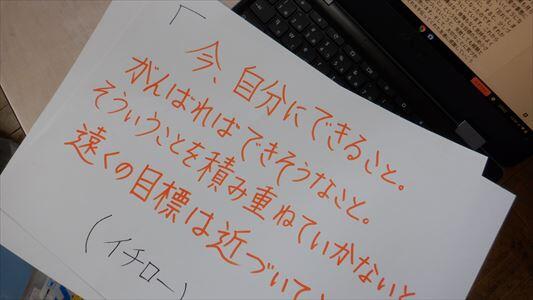 「
今、自分にできること。
がんばればできそうなこと。
そういうことを積み重ねていかないと
遠くの目標は近づいて
(イチロー)